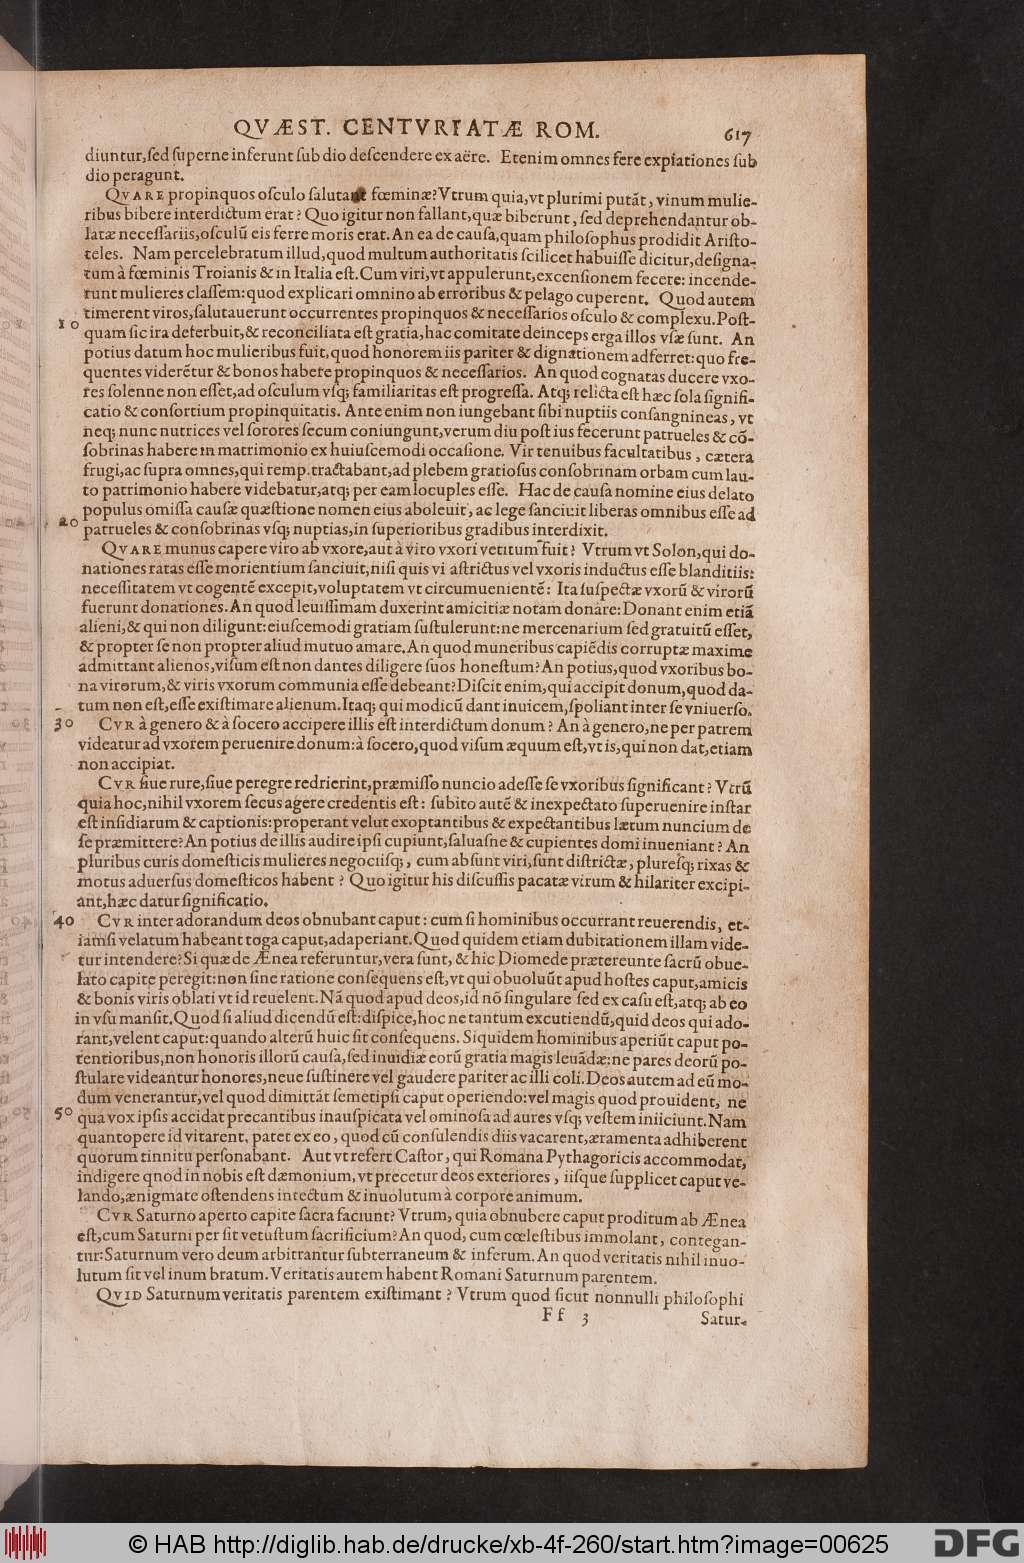 QVÆST. CENTVRIATÆ ROM. 617
diuntur, sed superne inferunt sub dio descendere ex aëre. Etenim omnes fere expiationes sub
dio peragunt.
QVARE propinquos osculo salutant fœminæ? Vtrum quia, vt plurimi putāt, vinum mulie-
ribus bibere interdictum erat? Quo igitur non fallant, quæ biberunt, sed deprehendantur ob-
latæ necessariis, osculū eis ferre moris erat. An ea de causa, quam philosophus prodidit Aristo-
teles. Nam percelebratum illud, quod multum authoritatis scilicet habuisse dicitur, designa-
tum à fœminis Troianis & in Italia est. Cum viri, vt appulerunt, excensionem fecere: incende-
runt mulieres classem: quod explicari omnino ab erroribus & pelago cuperent. Quod autem
timerent viros, salutauerunt occurrentes propinquos & necessarios osculo & complexu. Post-
10 quam sic ira deferbuit, & reconciliata est gratia, hac comitate deinceps erga illos vsæ sunt. An
potius datum hoc mulieribus fuit, quod honorem iis pariter & dignationem adferret: quo fre-
quentes viderētur & bonos habere propinquos & necessarios. An quod cognatas ducere vxo-
res solenne non esset, ad osculum vsq; familiaritas est progressa. Atq; relicta est hæc sola signifi-
catio & consortium propinquitatis. Ante enim non iungebant sibi nuptiis consangnineas, vt
neq; nunc nutrices vel sorores secum coniungunt, verum diu post ius fecerunt patrueles & cō-
sobrinas habere in matrimonio ex huiuscemodi occasione. Vir tenuibus facultatibus, cætera
frugi, ac supra omnes, qui remp. tractabant, ad plebem gratiosus consobrinam orbam cum lau-
to patrimonio habere videbatur, atq; per eam locuples esse. Hac de causa nomine eius delato
populus omissa causæ quæstione nomen eius aboleuit, ac lege sanciuit liberas omnibus esse ad
20 patrueles & consobrinas vsq; nuptias, in superioribus gradibus interdixit.
QVARE munus capere viro ab vxore, aut à viro vxori vetitum fuit? Vtrum vt Solon, qui do-
nationes ratas esse morientium sanciuit, nisi quis vi astrictus vel vxoris inductus esse blanditiis:
necessitatem vt cogentē excepit, voluptatem vt circumuenientē: Ita suspectæ vxorū & virorū
fuerunt donationes. An quod leuissimam duxerint amicitiæ notam donare: Donant enim etiā
alieni, & qui non diligunt: eiuscemodi gratiam sustulerunt: ne mercenarium sed gratuitū esset,
& propter se non propter aliud mutuo amare. An quod muneribus capiēdis corruptæ maxime
admittant alienos, visum est non dantes diligere suos honestum? An potius, quod vxoribus bo-
na virorum, & viris vxorum communia esse debeant? Discit enim, qui accipit donum, quod da-
tum non est, esse existimare alienum. Itaq; qui modicū dant inuicem, spoliant inter se vniuerso.
30 CVR à genero & à socero accipere illis est interdictum donum? An à genero, ne per patrem
videatur ad vxorem peruenire donum: à socero, quod visum æquum est, vt is, qui non dat, etiam
non accipiat.
CVR siue rure, siue peregre redierint, præmisso nuncio adesse se vxoribus significant? Vtrū
quia hoc, nihil vxorem secus agere credentis est: subito autē & inexpectato superuenire instar
est insidiarum & captionis: properant velut exoptantibus & expectantibus lætum nuncium de
se præmittere? An potius de illis audire ipsi cupiunt, saluasne & cupientes domi inueniant? An
pluribus curis domesticis mulieres negociisq;, cum absunt viri, sunt districtæ, pluresq; rixas &
motus aduersus domesticos habent? Quo igitur his discussis pacatæ virum & hilariter excipi-
ant, hæc datur significatio.
40 CVR inter adorandum deos obnubant caput: cum si hominibus occurrant reuerendis, et-
iamsi velatum habeant toga caput, adaperiant. Quod quidem etiam dubitationem illam vide-
tur intendere? Si quæ de Ænea referuntur, vera sunt, & hic Diomede prætereunte sacrū obue-
lato capite peregit: non sine ratione consequens est, vt qui obuoluūt apud hostes caput, amicis
& bonis viris oblati vt id reuelent. Nā quod apud deos, id nō singulare sed ex casu est, atq; ab eo
in vsu mansit. Quod si aliud dicendū est: dispice, hoc ne tantum excutiendū, quid deos qui ado-
rant, velent caput: quando alterū huic sit consequens. Siquidem hominibus aperiūt caput po-
tentioribus, non honoris illorū causa, sed inuidiæ eorū gratia magis leuādæ: ne pares deorū po-
stulare videantur honores, neue sustinere vel gaudere pariter ac illi coli. Deos autem ad eū mo-
dum venerantur, vel quod dimittāt semetipsi caput operiendo: vel magis quod prouident, ne
50 qua vox ipsis accidat precantibus inauspicata vel ominosa ad aures vsq; vestem iniiciunt. Nam
quantopere id vitarent, patet ex eo, quod cū consulendis diis vacarent, æramenta adhiberent
quorum tinnitu personabant. Aut vt refert Castor, qui Romana Pythagoricis accommodat,
indigere qnod in nobis est dæmonium, vt precetur deos exteriores, iisque supplicet caput ve-
lando, ænigmate ostendens intectum & inuolutum à corpore animum.
CVR Saturno aperto capite sacra faciunt? Vtrum, quia obnubere caput proditum ab Ænea
est, cum Saturni per sit vetustum sacrificium? An quod, cum cœlestibus immolant, contegan-
tur: Saturnum vero deum arbitrantur subterraneum & inferum. An quod veritatis nihil inuo-
lutum sit vel inumbratum. Veritatis autem habent Romani Saturnum parentem.
QVID Saturnum veritatis parentem existimant? Vtrum quod sicut nonnulli philosophi
Ff 3 Satur-
© HAB http://diglib.hab.de/drucke/xb-4f-260/start.htm?image=00625 DFG